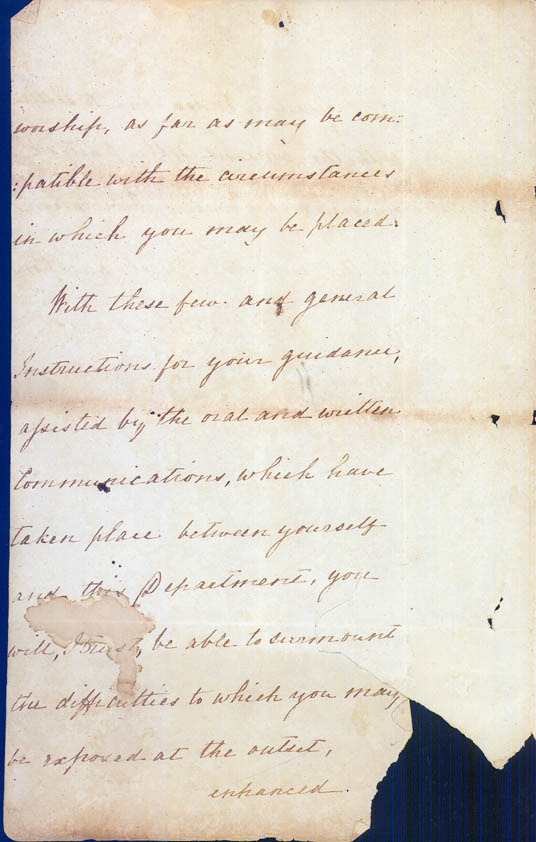 worship, as far as may be com:
:patible with the circumstances
in which you may be placed.
With these few and general
Instructions for your guidance,
assisted by the oral and written
Communications, which have
taken place between yourself
and this Department, you
will, I trust, be able to surmount
the difficulties to which you may
be exposed at the outset,
enhanced.